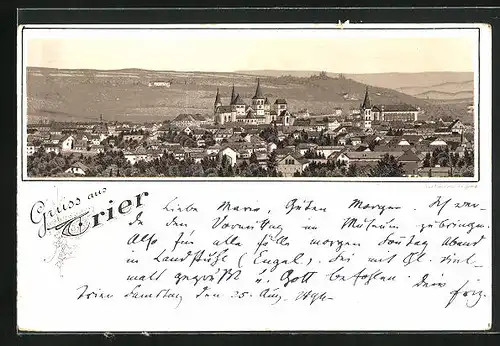 Gruss aus Trier
Liebe Marie, Guten Morgen. Ich wer-
de den Vormittag im Museum zubringen.
Also für alle Fälle morgen Sonntag Abend
in Landstuhl (Engel). Sei mit Gl. viel-
malt gegrüßt u. Gott befohlen. Dein Friz.
Trier Samstag den 25. Aug.